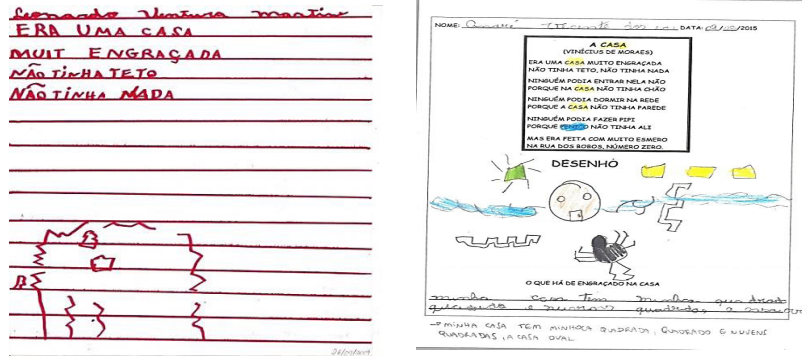 Leonardo Ventura Martin
ERA UMA CASA
MUIT ENGRAÇADA
NÃO TINHA TETO
NÃO TINHA NADA
NOME: DATA: /2015
A CASA
(VINÍCIUS DE MORAES)
ERA UMA CASA MUITO ENGRAÇADA
NÃO TINHA TETO, NÃO TINHA NADA
NINGUÉM PODIA ENTRAR NELA NÃO
PORQUE NA CASA NÃO TINHA CHÃO
NINGUÉM PODIA DORMIR NA REDE
PORQUE A CASA NÃO TINHA PAREDE
NINGUÉM PODIA FAZER PIPI
PORQUE PENICO NÃO TINHA ALI
MAS ERA FEITA COM MUITO ESMERO
NA RUA DOS BOBOS, NÚMERO ZERO.
DESENHO
O QUE HÁ DE ENGRAÇADO NA CASA
minha casa tem minhoca quadrad
→ MINHA CASA TEM MINHOCA QUADRADA, QUADRADO E NUVENS
QUADRADAS, A CASA OVAL.